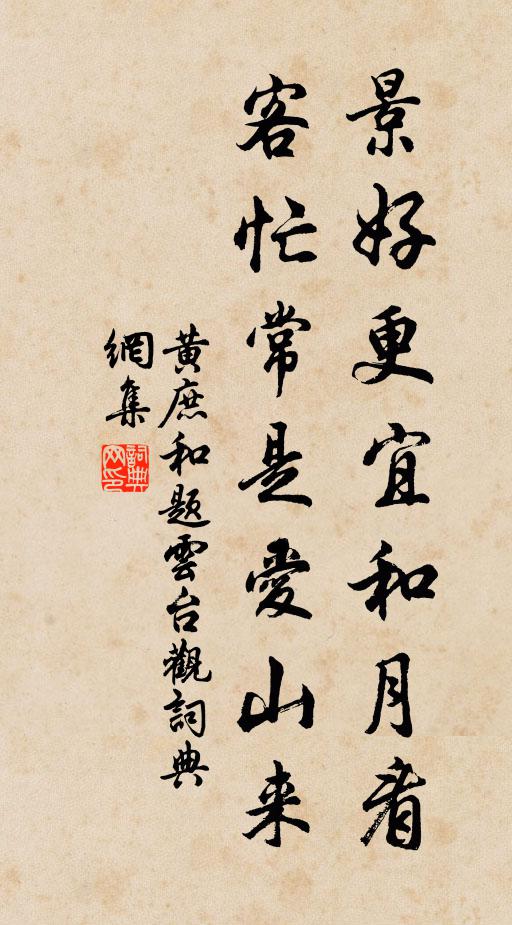 景好更宜和月看
客忙常是愛山来
黄庶和题雲台觀詞典
網集
詞典网印